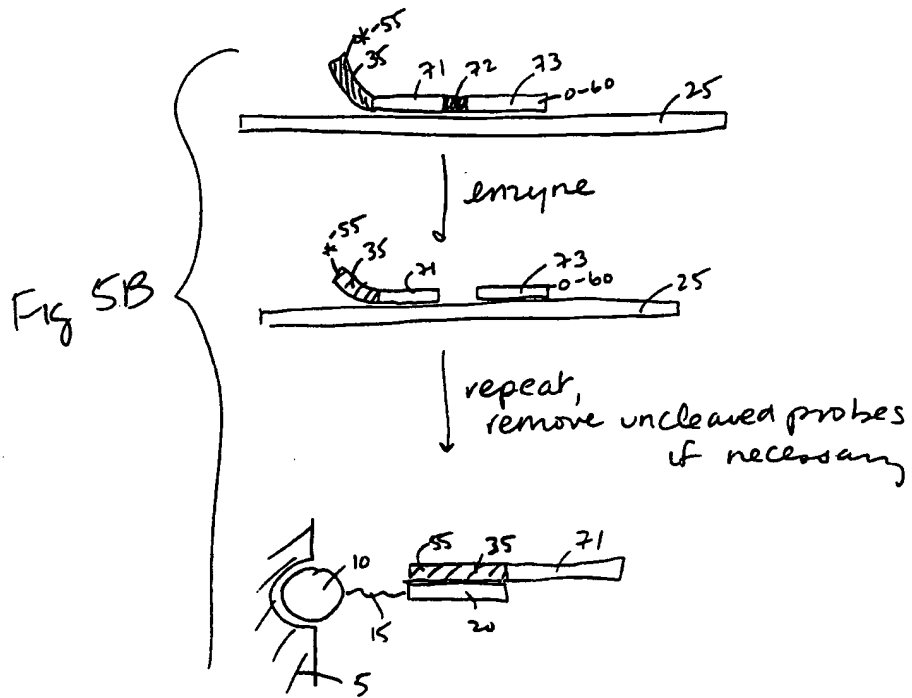 *-55
35
71 72 73
0-60
25
enzyne
*-55
35
71
73
0-60
25
Fig 5B
repeat,
remove uncleaved probes
if necessary
55 35 71
10
15
20
5